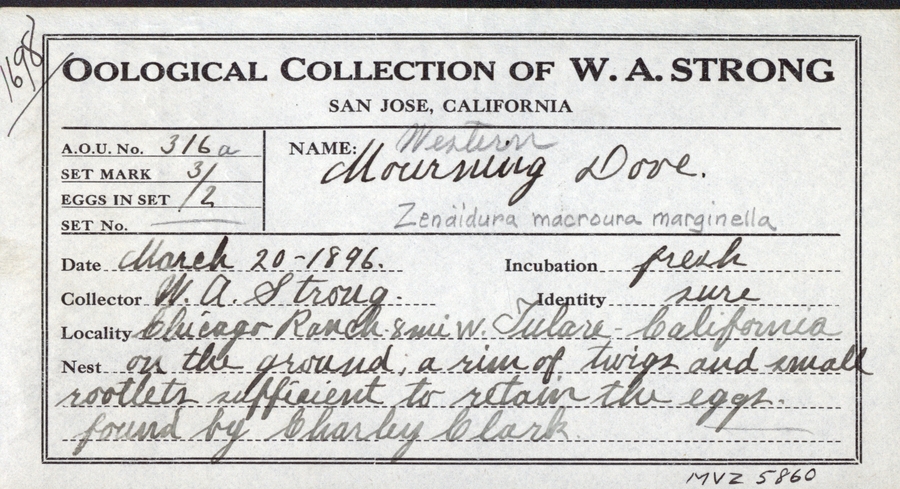 1698
OOLOGICAL COLLECTION OF W. A. STRONG
SAN JOSE, CALIFORNIA
A.O.U. No. 316a
SET MARK 3/
EGGS IN SET /2
SET No.
NAME: Western
Mourning Dove.
Zenaidura macroura marginella
Date March 20-1896.
Incubation fresh
Collector W. A. Strong.
Identity sure
Locality Chicago Ranch 8 mi W. Tulare - California
Nest on the ground, a rim of twigs and small
rootlets sufficient to retain the eggs.
found by Charley Clark.
MVZ 5860